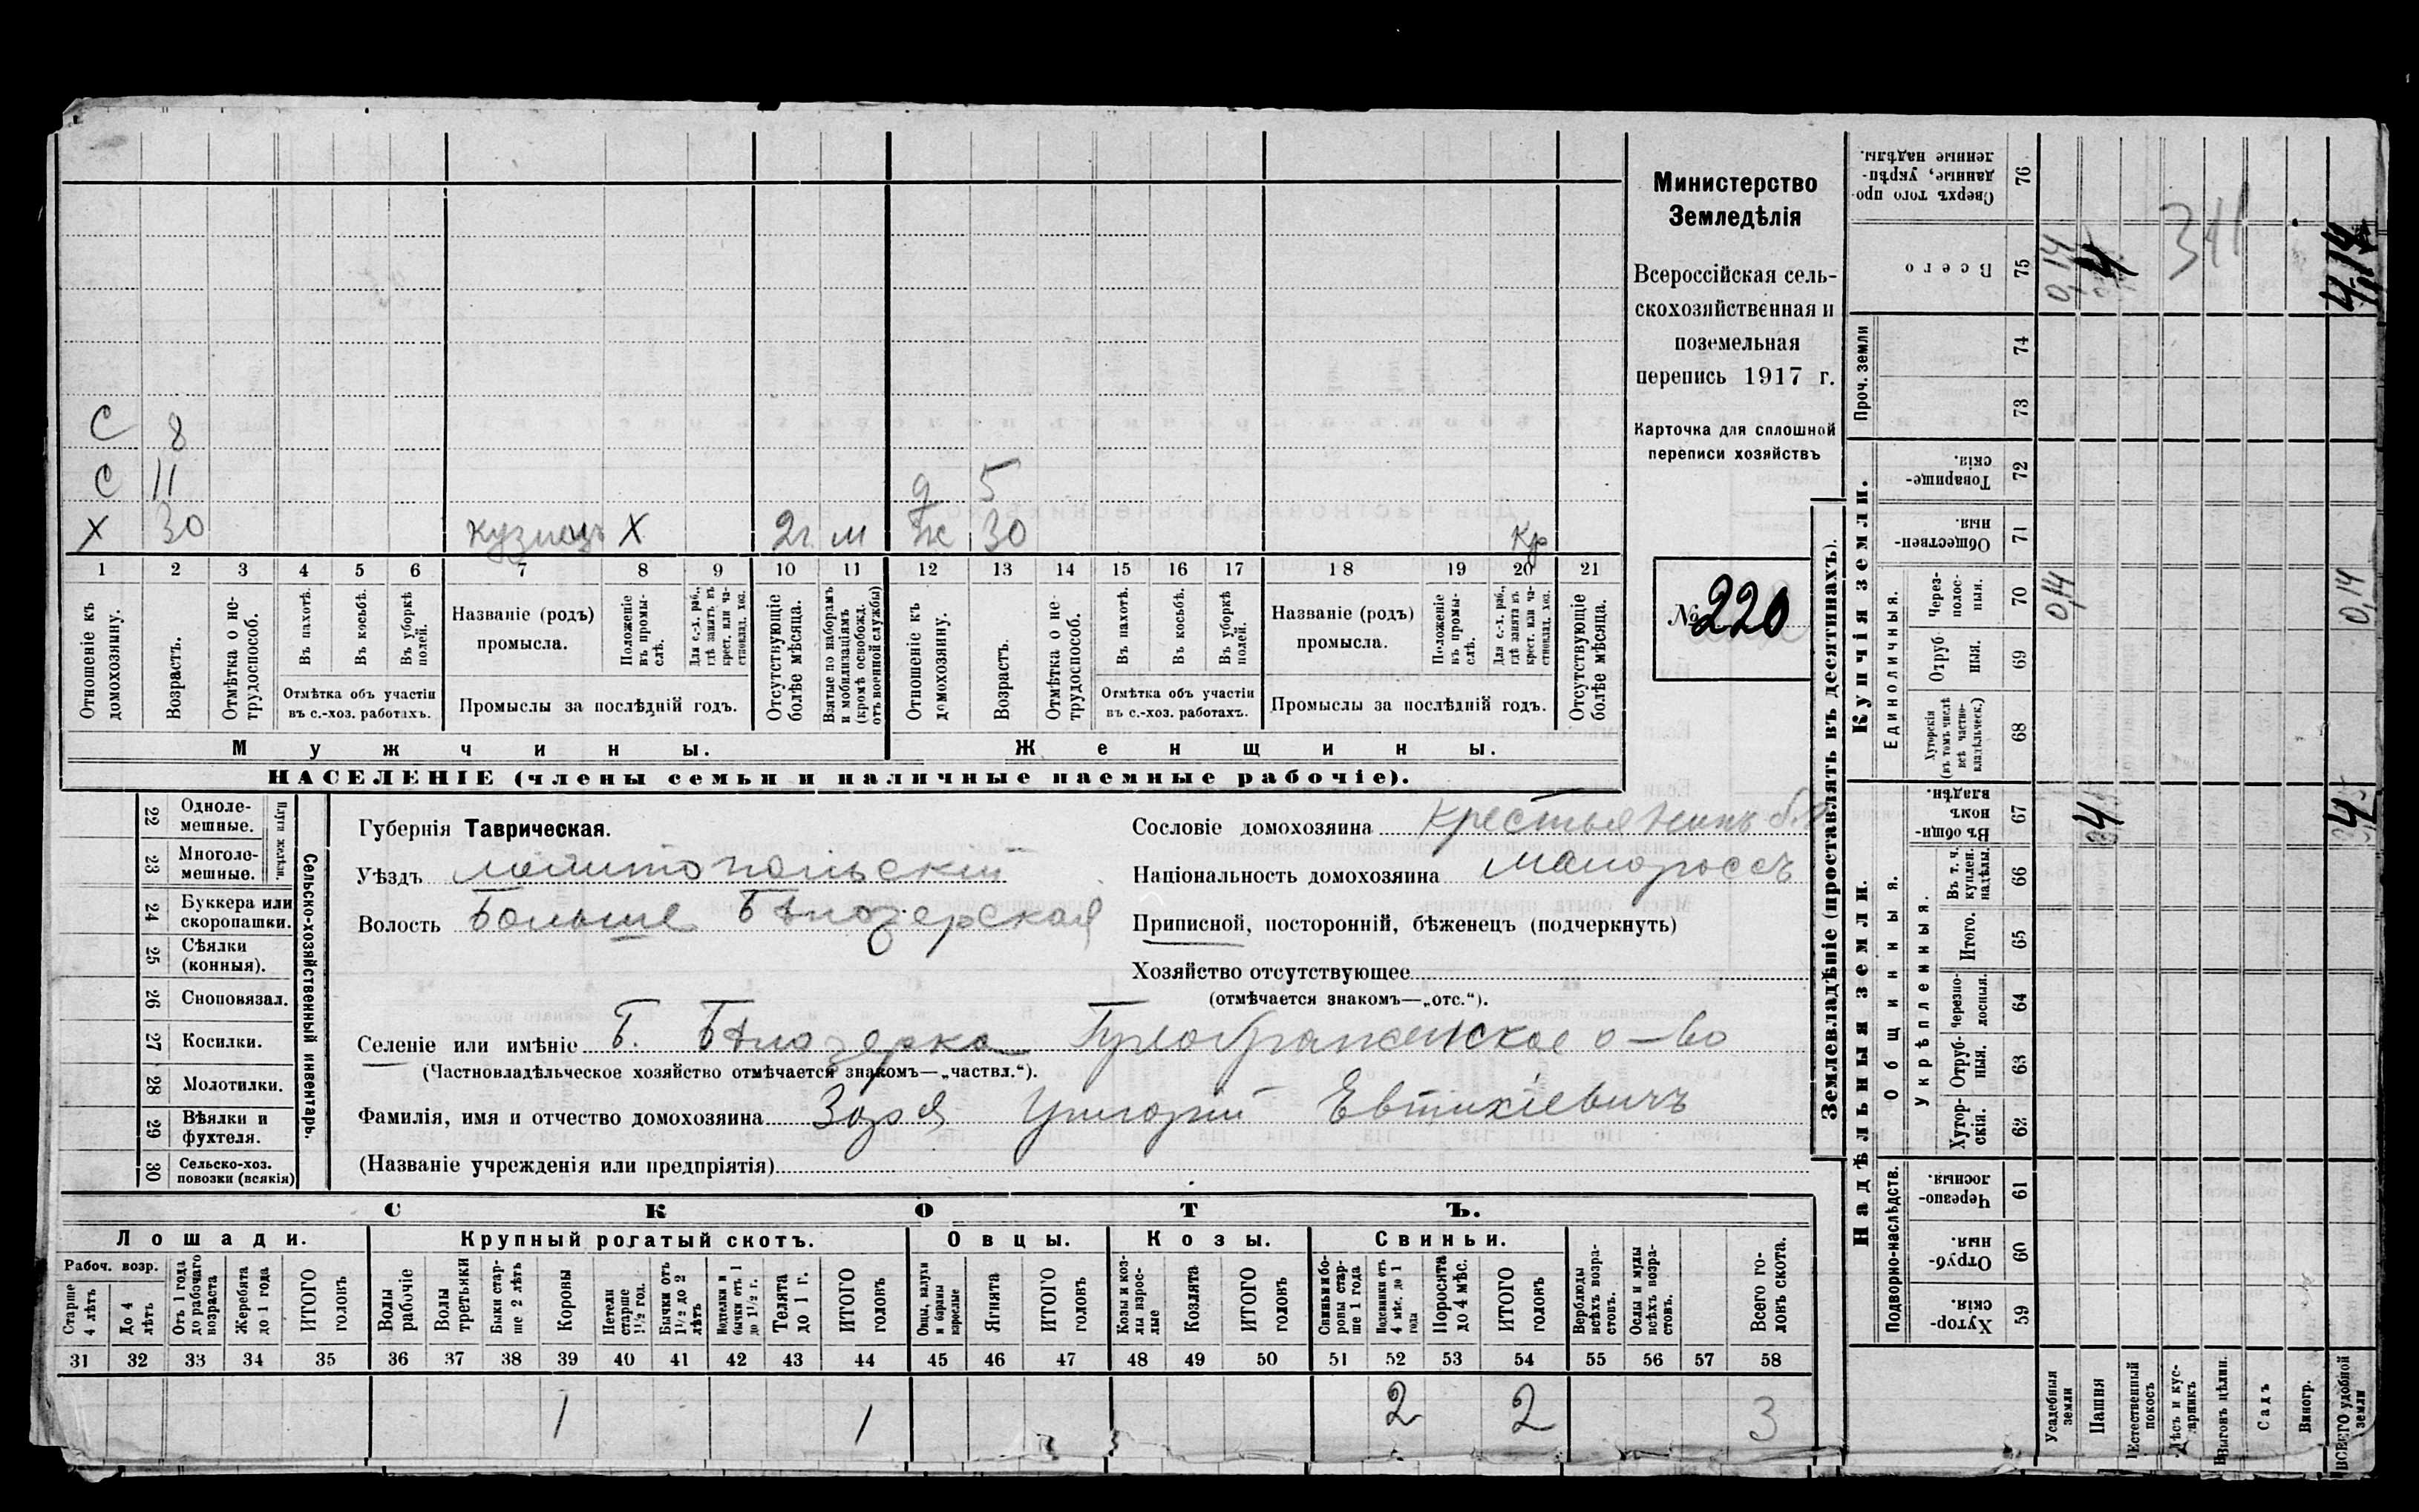 Министерство
Земледѣлія
Всероссійская сель-
скохозяйственная и
поземельная
перепись 1917 г.
Карточка для сплошной
переписи хозяйствъ
№ 220
С 8
С 11 д 5
Х 30 кузнецъ Х 2г м ж 30 кр
1 2 3 4 5 6 7 8 9 10 11 12 13 14 15 16 17 18 19 20 21
Отношеніе къ домохозяину.
Возрастъ.
Отмѣтка о не-трудоспособ.
Въ пахотѣ.
Въ косьбѣ.
Въ уборкѣ полей.
Отмѣтка объ участіи
въ с.-хоз. работахъ.
Названіе (родъ)
промысла.
Положеніе въ промы-слѣ.
Для с.-х. раб., гдѣ занятъ въ крест. или ча-стновлад. хоз.
Промыслы за послѣдній годъ.
Отсутствующіе болѣе мѣсяца.
Взятые по наборамъ и мобилизаціямъ (кромѣ освобожд. отъ военной службы)
Отношеніе къ домохозяину.
Возрастъ.
Отмѣтка о не-трудоспособ.
Въ пахотѣ.
Въ косьбѣ.
Въ уборкѣ полей.
Отмѣтка объ участіи
въ с.-хоз. работахъ.
Названіе (родъ)
промысла.
Положеніе въ промы-слѣ.
Для с.-х. раб., гдѣ занята въ крест. или ча-стновлад. хоз.
Промыслы за послѣдній годъ.
Отсутствующіе болѣе мѣсяца.
Мужчины. Женщины.
НАСЕЛЕНІЕ (члены семьи и наличные наемные рабочіе).
Сельско-хозяйственный инвентарь.
Плуги желѣзн.
22 Одноле-мешные.
23 Многоле-мешные.
24 Буккера или скоропашки.
25 Сѣялки (конныя).
26 Сноповязал.
27 Косилки.
28 Молотилки.
29 Вѣялки и фухтеля.
30 Сельско-хоз. повозки (всякія)
Губернія Таврическая.
Уѣздъ Мелитопольскій
Волость Больше Бѣлозерская
Сословіе домохозяина крестьянинъ
Національность домохозяина малороссъ
Приписной, посторонній, бѣженецъ (подчеркнуть)
Хозяйство отсутствующее
(отмѣчается знакомъ—„отс.“).
Селеніе или имѣніе Б. Бѣлозерка о-во
(Частновладѣльческое хозяйство отмѣчается знакомъ—„частвл.“).
Фамилія, имя и отчество домохозяина Зоря Григорій Евтихіевичъ
(Названіе учрежденія или предпріятія)
СКОТЪ.
Лошади. Крупный рогатый скотъ. Овцы. Козы. Свиньи.
Рабоч. возр.
Старше 4 лѣтъ
До 4 лѣтъ
Отъ 1 года до рабочаго возраста
Жеребята до 1 года
ИТОГО головъ
Волы рабочіе
Волы третьяки
Быки стар-ше 2 лѣтъ
Коровы
Нетели старше 1½ год.
Бычки отъ 1½ до 2 лѣтъ
Подтелки и бычки отъ 1 до 1½ г.
Телята до 1 г.
ИТОГО головъ
Овцы, валухи и бараны взрослые
Ягнята
ИТОГО головъ
Козы и коз-лы взрос-лые
Козлята
ИТОГО головъ
Свиньи и бо-ровы стар-ше 1 года
Подсвинки отъ 4 мѣс. до 1 года
Поросята до 4 мѣс.
ИТОГО головъ
Верблюды всѣхъ возра-стовъ.
Ослы и мулы всѣхъ возра-стовъ.
Всего го-ловъ скота.
31 32 33 34 35 36 37 38 39 40 41 42 43 44 45 46 47 48 49 50 51 52 53 54 55 56 57 58
1 1 2 2 3
Землевладѣніе (проставлять въ десятинахъ).
Надѣльныя земли. Купчія земли.
Проч. земли
Сверхъ того про-данные, укрѣп-ленные надѣлы. 76
Всего 75 0,14 4 4,14
74
73
341
Товарище-скія. 72
Обществен-ныя 71
Единоличныя.
Через-полос-ныя. 70 0,14 0,14
Отруб-ныя. 69
Хуторскія (въ томъ числѣ всѣ частно-владѣльческ.) 68
Общинныя.
Въ общи-номъ владѣн. 67 4 4
Укрѣпленныя.
Въ т. ч. куплен. надѣлы. 66
Итого. 65
Черезпо-лосныя. 64
Отруб-ныя. 63
Хутор-скія. 62
Подворно-наслѣдств.
Черезпо-лосныя 61
Отруб-ныя. 60
Хутор-скія 59
Усадебныя земли
Пашня
Естественный покосъ
Лѣсъ и кус-тарникъ
Выгонъ цѣлин.
Садъ
Виногр.
ВСЕГО удобной земли